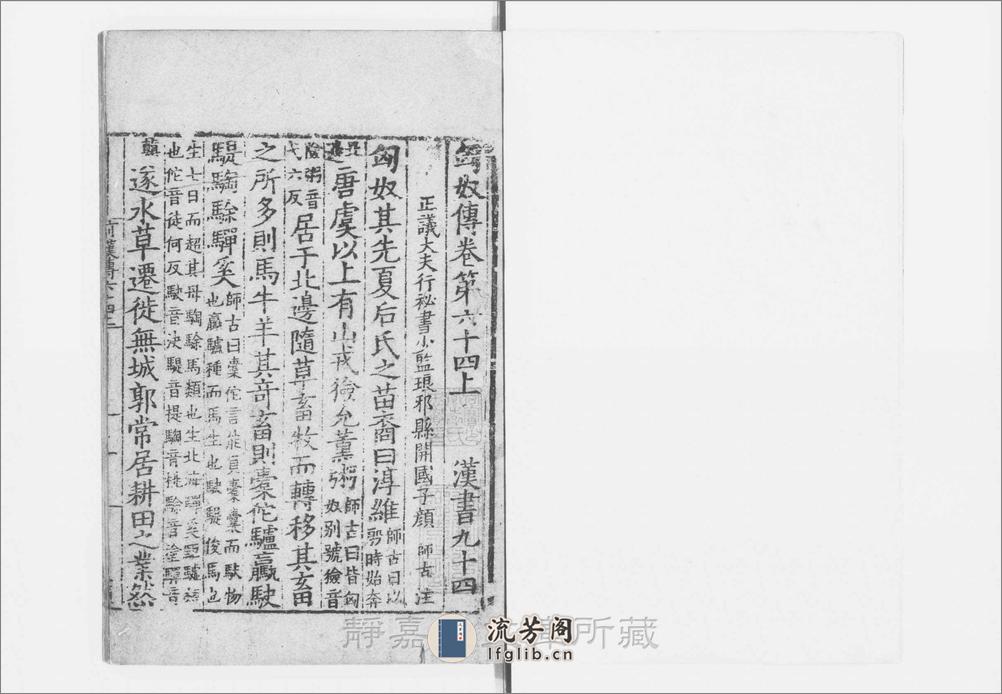 匈奴傳卷第六十四上　漢書九十四
正議大夫行祕書少監琅邪縣開國子顏師古注
匈奴其先夏后氏之苗裔曰淳維師古曰以殷時始奔
北邊唐虞以上有山戎獫允薰粥師古曰皆匈奴别號獫音
險粥音弋六反居于北邊隨草畜牧而轉移其畜
之所多則馬牛羊其奇畜則橐佗驢驘駃
騠騊駼驒奚師古曰橐佗言能負橐囊而馱物也驘驢種而馬生也駃騠俊馬也
生七日而超其母騊駼馬類也生北海驒奚駏驉類也佗音徒何反駃音決騠音提騊音桃駼音塗驒音
顛遂水草遷徙無城郭常居耕田之業然
前漢傳六十四上
靜嘉堂文庫所藏
流芳阁
lfglib.cn